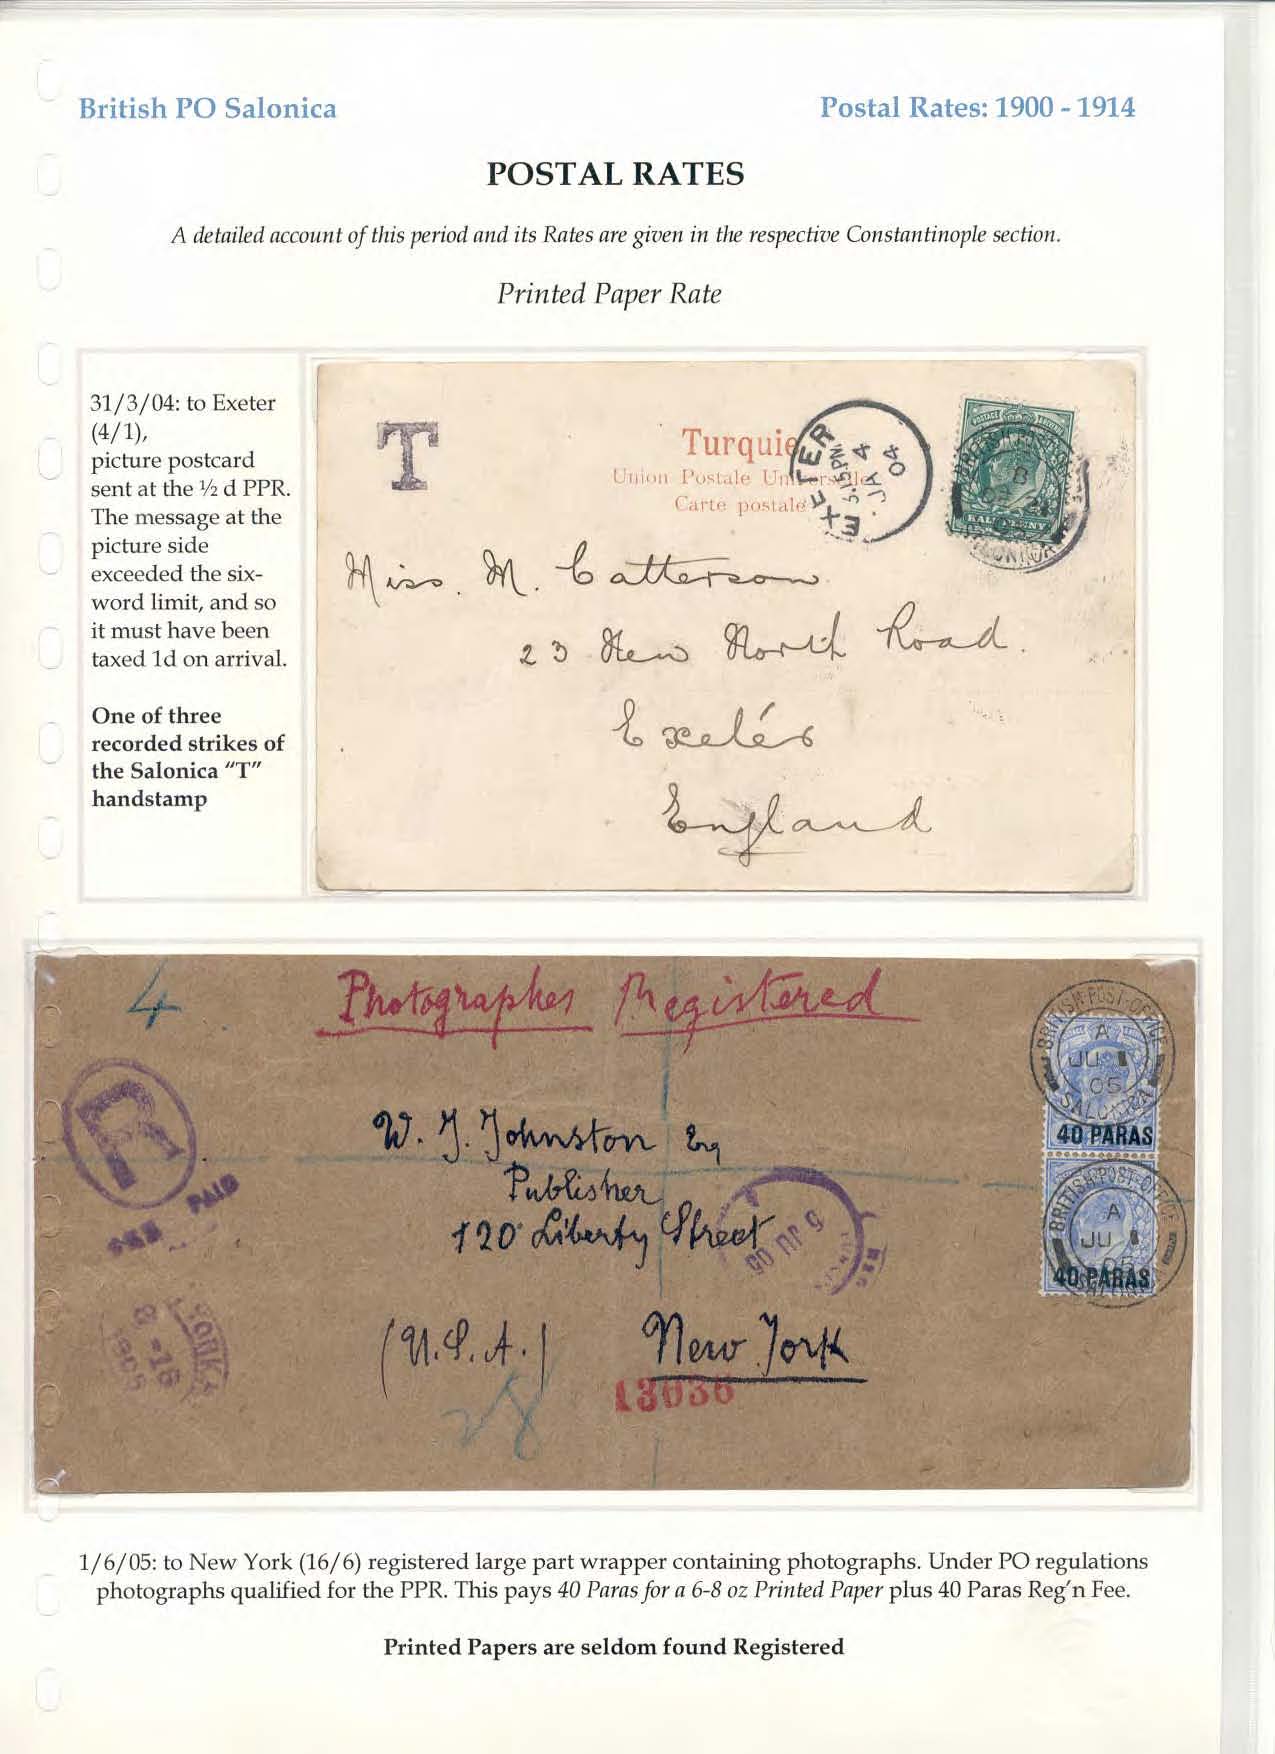 British PO Salonica
Postal Rates: 1900 - 1914
POSTAL RATES
A detailed account of this period and its Rates are given in the respective Constantinople section.
Printed Paper Rate
31/3/04: to Exeter
(4/1),
picture postcard
sent at the ½ d PPR.
The message at the
picture side
exceeded the six-
word limit, and so
it must have been
taxed 1d on arrival.
One of three
recorded strikes of
the Salonica "T"
handstamp
T
Turquie
Union Postale Universelle
Carte postale
EXETER
5.15PM
JA 4
04
POSTAGE
HALFPENNY
SALONICA
Miss. M. Catterson
23 New North Road.
Exeter
England
4
Photographes Registered
BRITISH POST-OFFICE
A
JU 1
05
SALONICA
40 PARAS
BRITISH POST-OFFICE
A
JU 1
05
40 PARAS
R
PAID
W. J. Johnston Esq
Publisher
120 Liberty Street
9 JU 05
(U.S.A.) New York
13036
28
1/6/05: to New York (16/6) registered large part wrapper containing photographs. Under PO regulations
photographs qualified for the PPR. This pays 40 Paras for a 6-8 oz Printed Paper plus 40 Paras Reg'n Fee.
Printed Papers are seldom found Registered